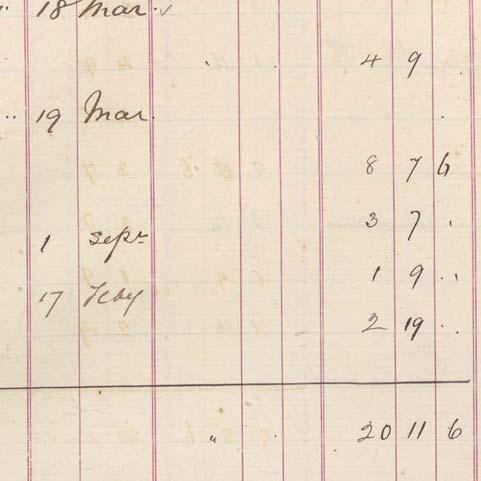 18 Mar.
4 9 .
19 Mar.
8 7 6
3 7 .
1 Sepr
1 9 ..
17 Feby
2 19 ..
" 20 11 6